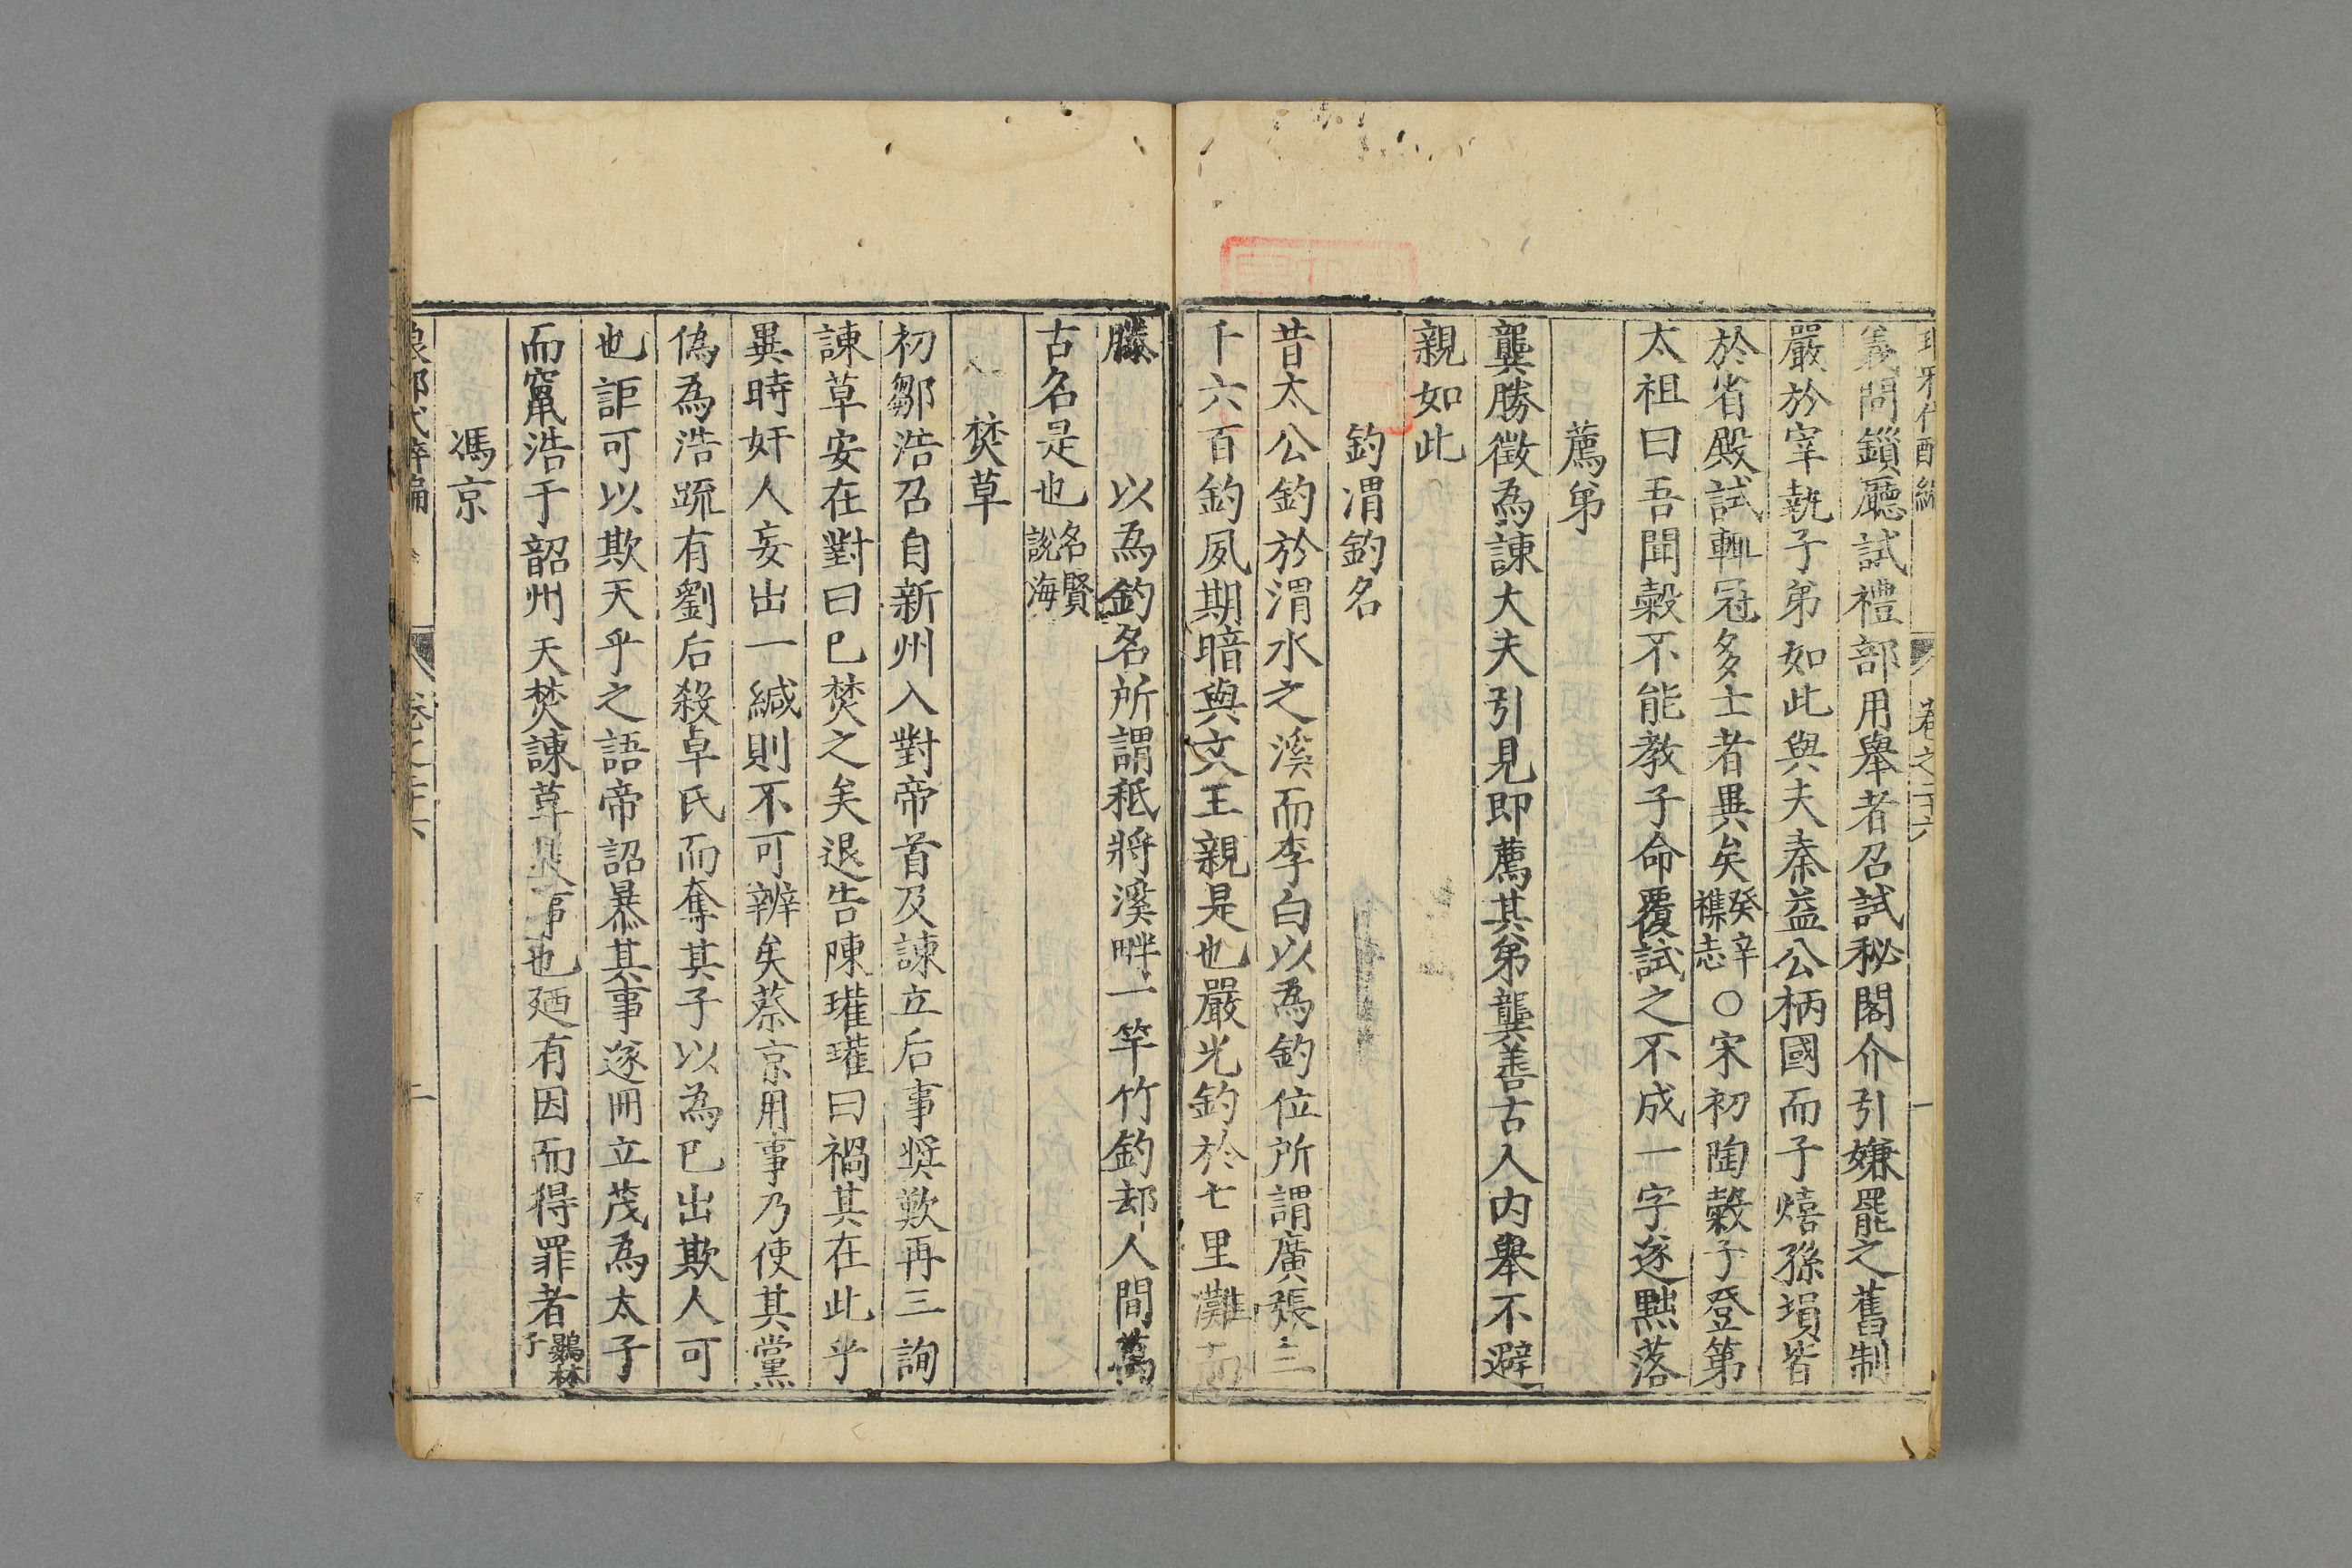 義問鎖廳試禮部用舉者召試秘閣介引嫌罷之舊制
嚴於宰執子弟如此與夫秦益公柄國而子熺孫塤皆
於省殿試輒冠多士者異矣癸辛襍志○宋初陶穀子登第
太祖曰吾聞穀不能教子命覆試之不成一字遂黜落
薦弟
龔勝徵為諫大夫引見即薦其弟龔善古人內舉不避
親如此
釣渭釣名
昔太公釣於渭水之溪而李白以為釣位所謂廣張三
千六百釣夙期暗與文王親是也嚴光釣於七里灘而
滕以為釣名所謂秪將溪畔一竿竹釣却人間萬
古名是也名賢說海
焚草
初鄒浩召自新州入對帝首及諫立后事奬歎再三詢
諫草安在對曰已焚之矣退告陳瓘瓘曰禍其在此乎
異時奸人妄出一緘則不可辨矣蔡京用事乃使其黨
偽為浩疏有劉后殺卓氏而奪其子以為已出欺人可
也詎可以欺天乎之語帝詔暴其事遂冊立茂為太子
而竄浩于韶州夭焚諫草是事也廼有因而得罪者鶡林子
馮京
卷之二十六
二